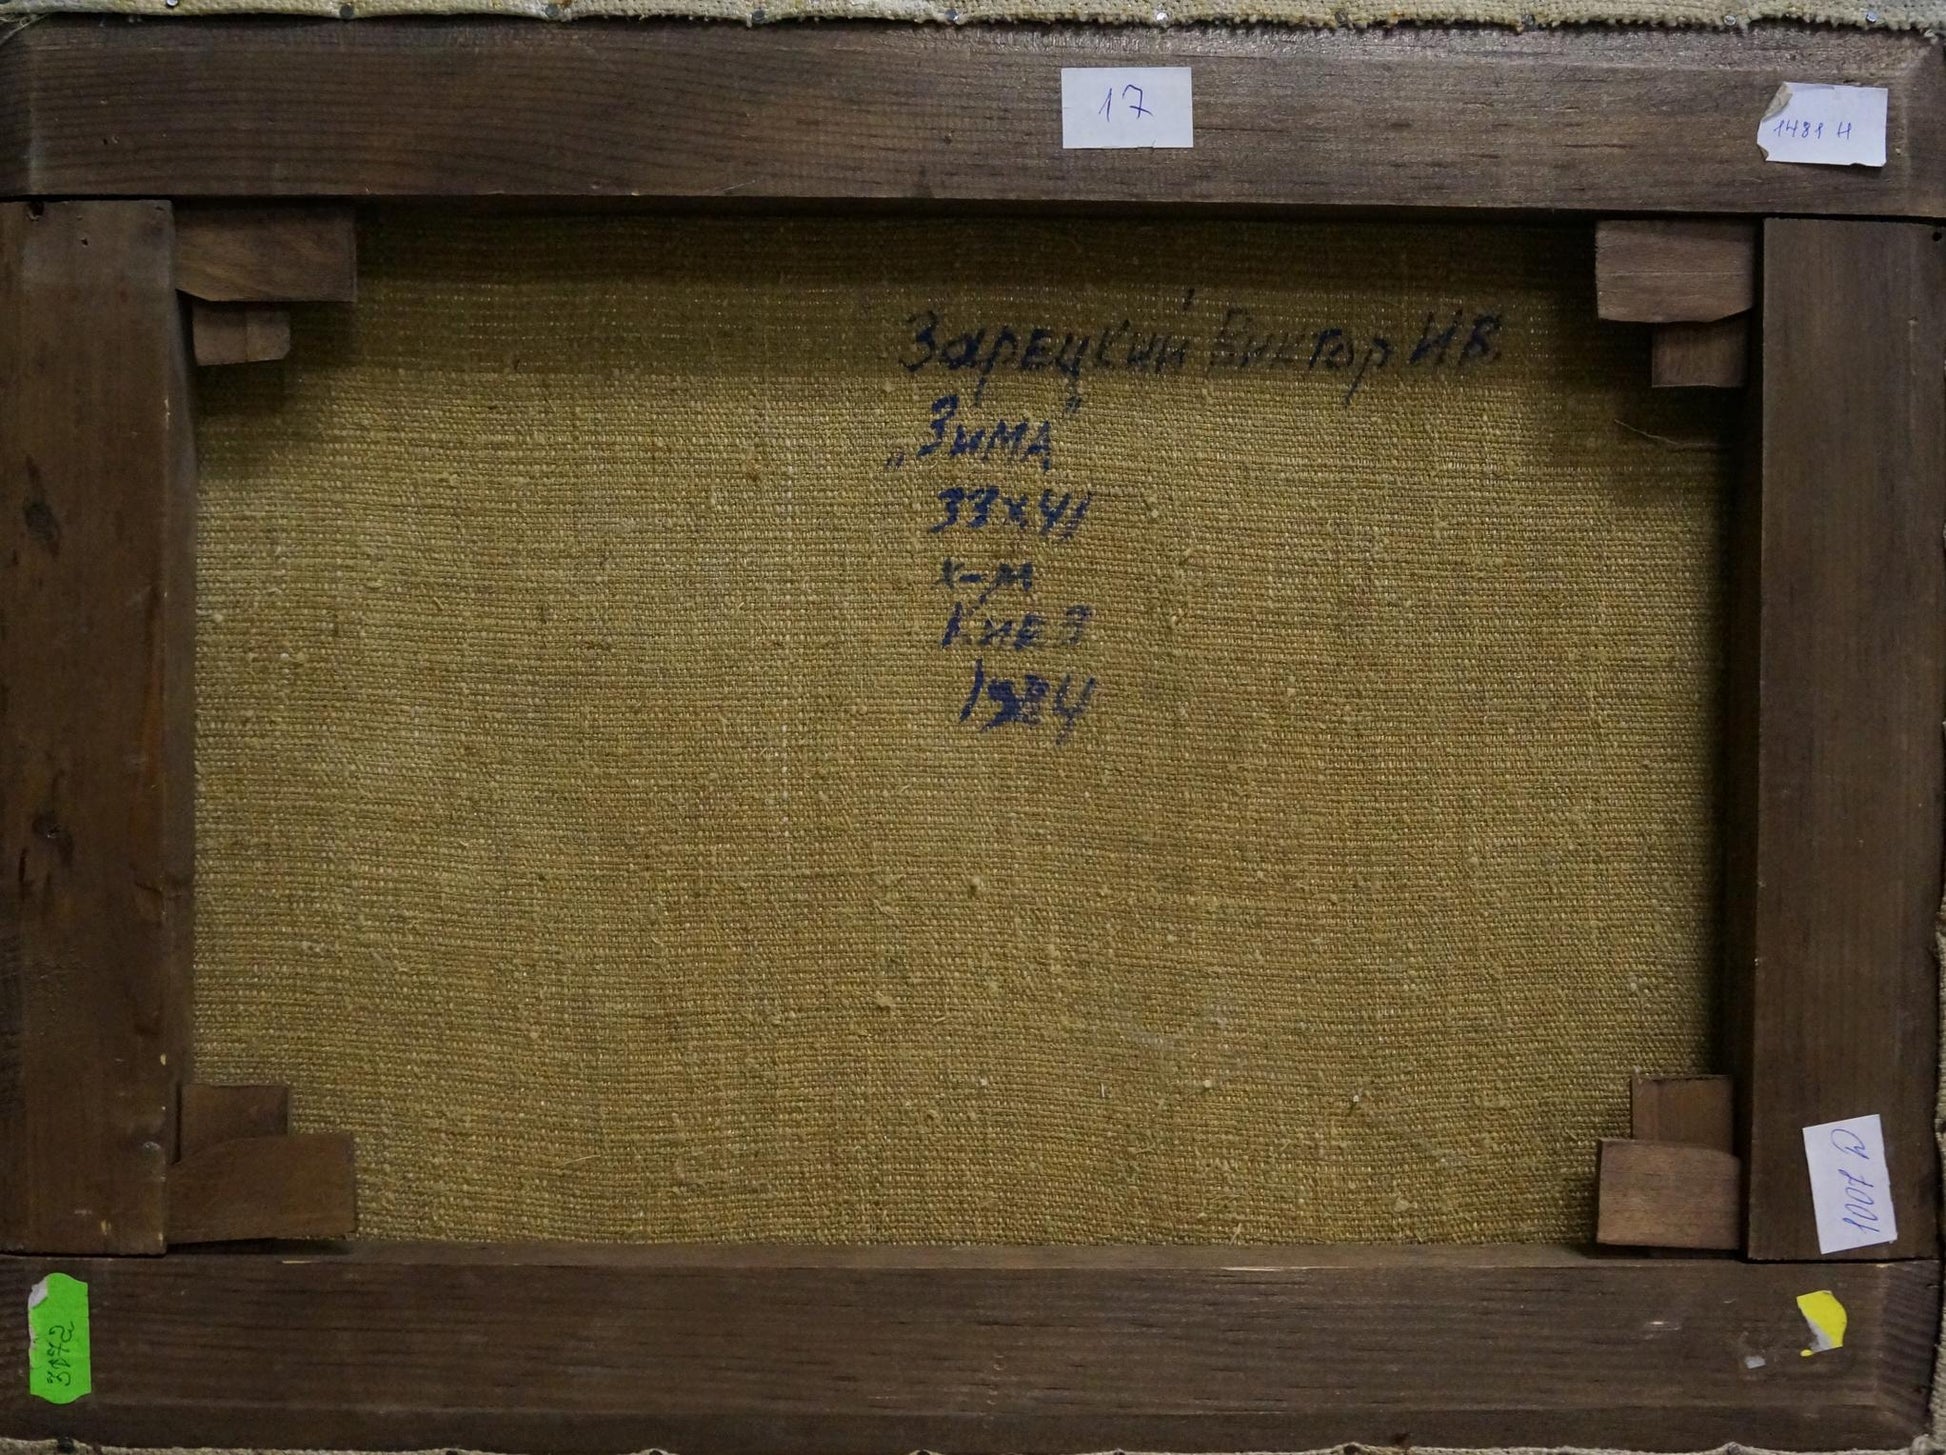 17
1481 Н
Зарецкий Виктор ИВ.
„Зима"
33х41
х-м
Киев
1984
1007 D